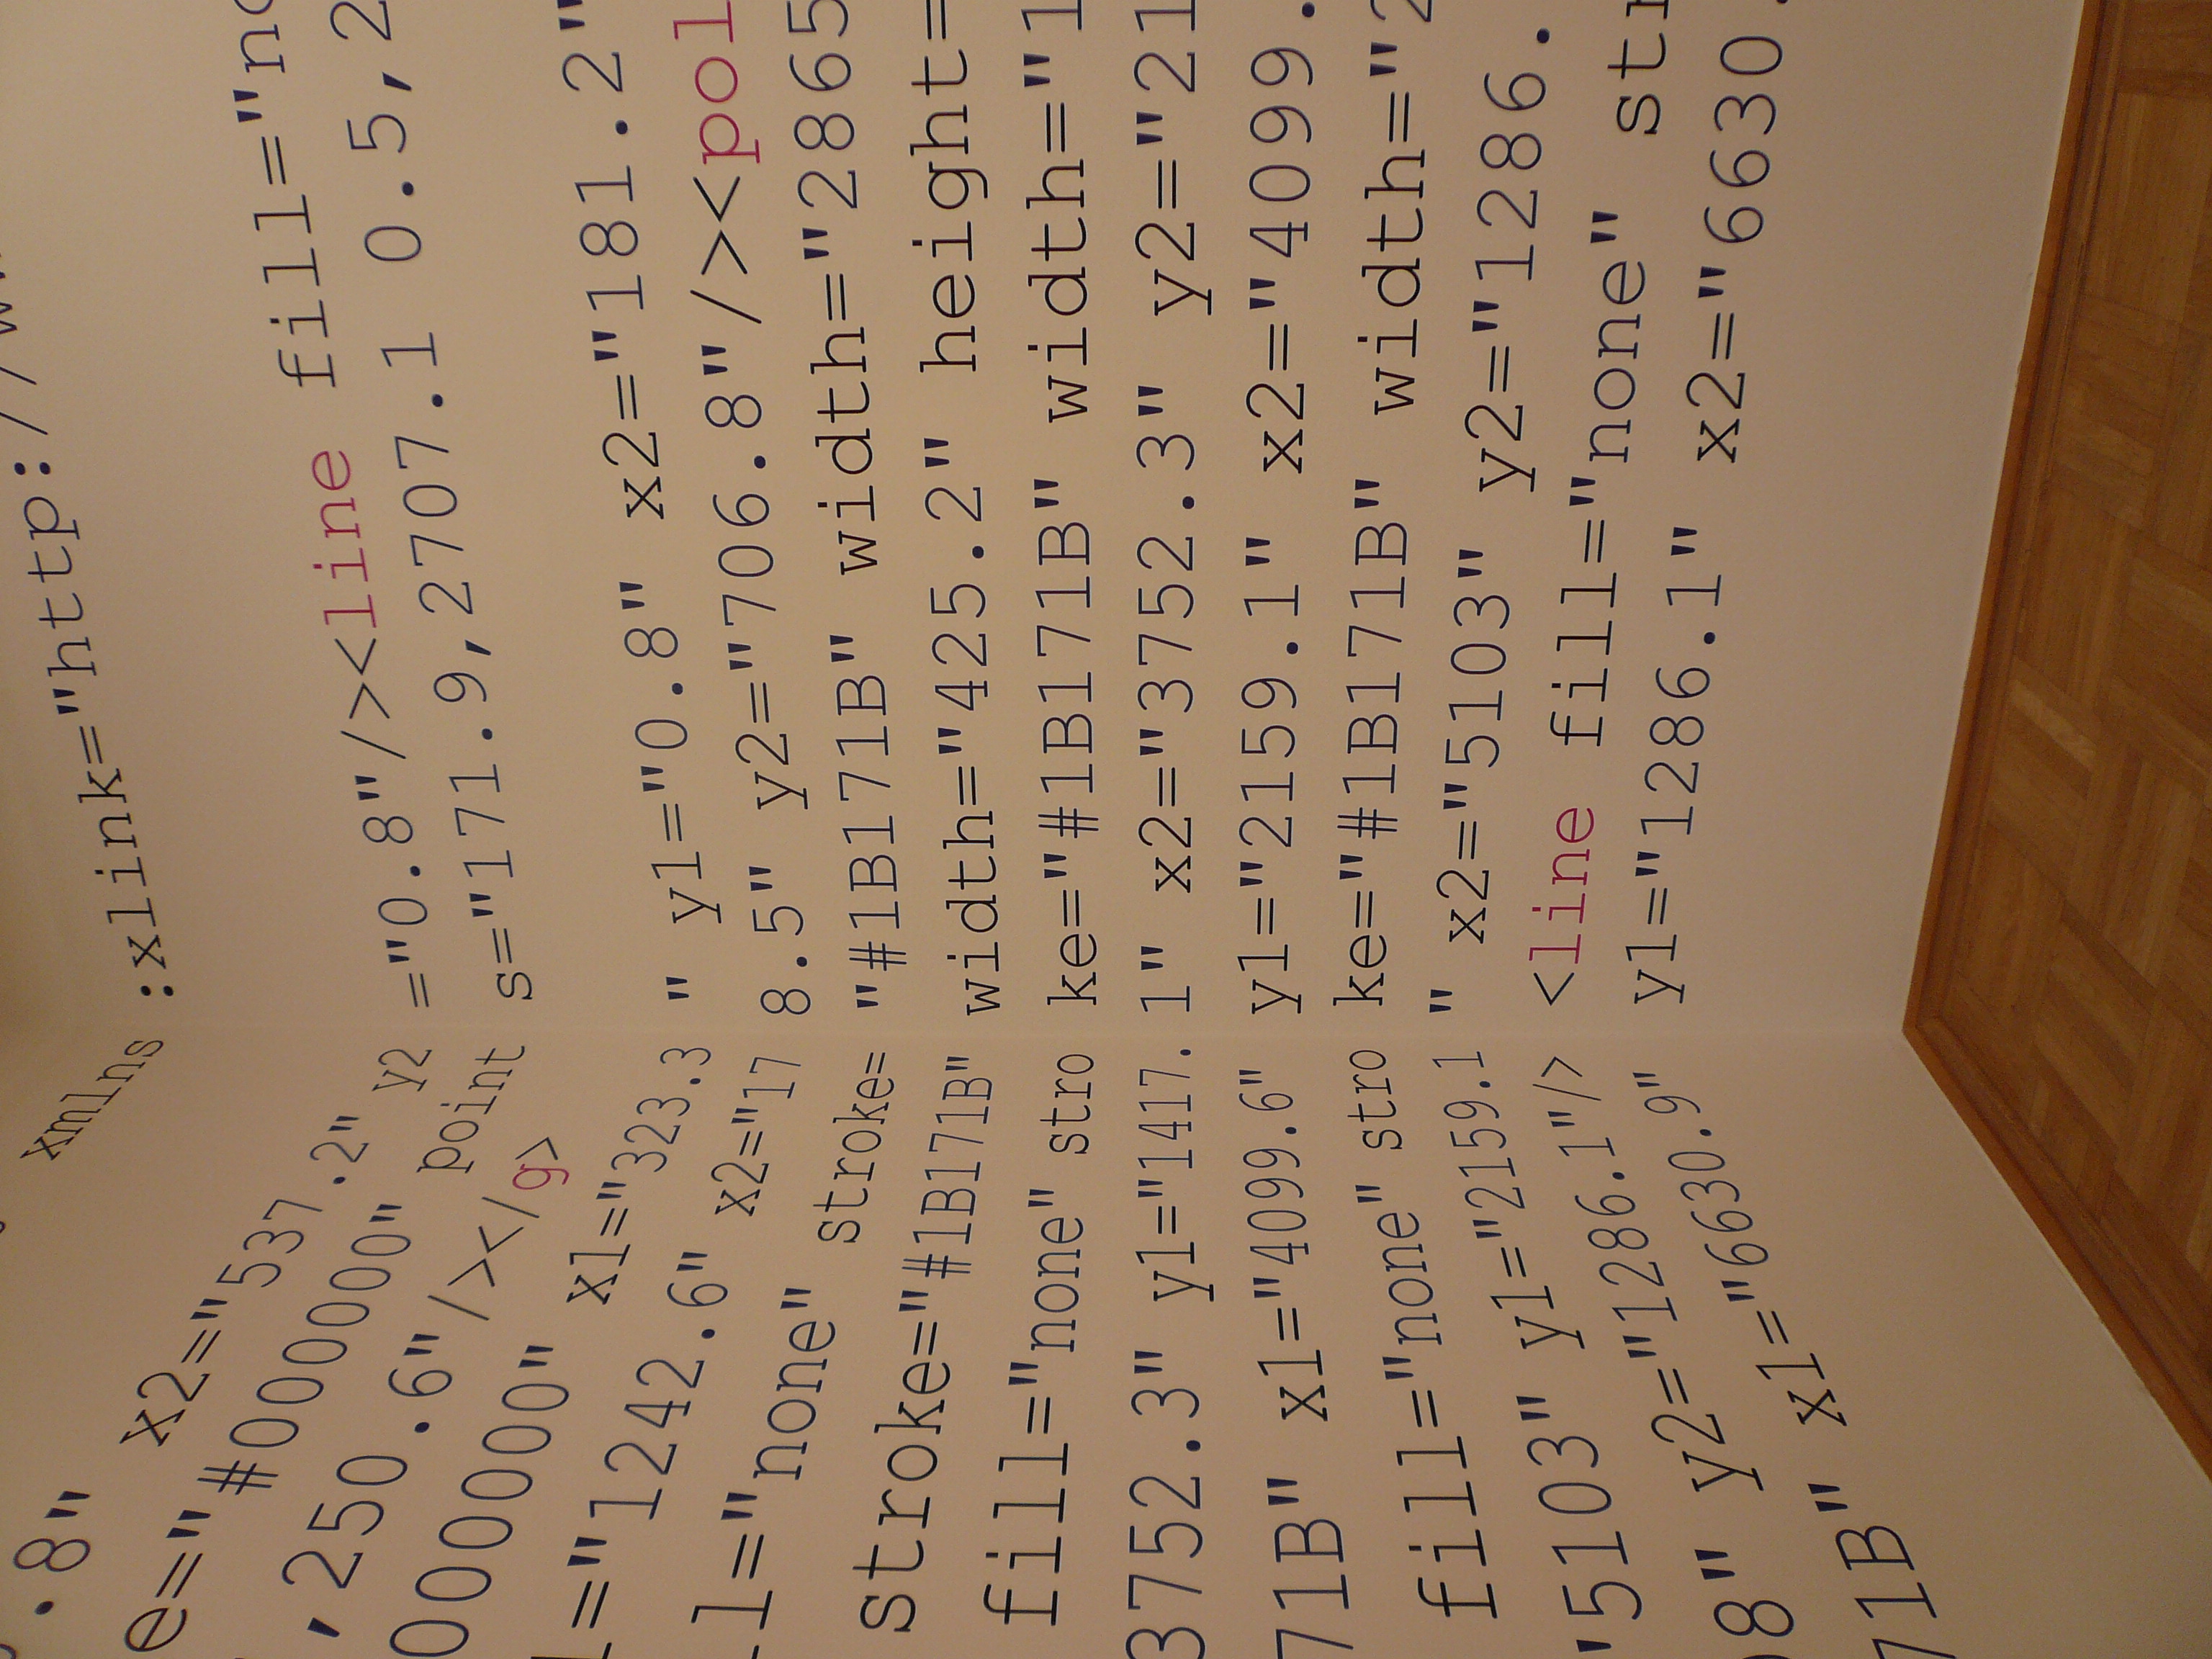 xmlns:xlink="http://w
.8" x2="537.2" y2="0.8"/><line fill="no
e="#000000" points="171.9,2707.1 0.5,2
,250.6"/></g>
000000" x1="323.3" y1="0.8" x2="181.2"
="1242.6" x2="178.5" y2="706.8"/><pol
l="none" stroke="#1B171B" width="2865
stroke="#1B171B" width="425.2" height=
fill="none" stroke="#1B171B" width="1
3752.3" y1="1417.1" x2="3752.3" y2="21
71B" x1="4099.6" y1="2159.1" x2="4099.
fill="none" stroke="#1B171B" width="2
"5103" y1="2159.1" x2="5103" y2="1286.
8" y2="1286.1"/><line fill="none" str
71B" x1="6630.9" y1="1286.1" x2="6630.